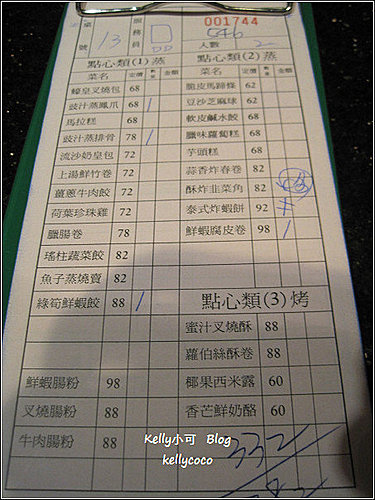 桌號 13 服務員 001744
人數 2
點心類(1)蒸 點心類(2)蒸
菜名 定價 數量 金額 菜名 定價 數量 金額
蠔皇叉燒包 68 脆皮馬蹄條 62
豉汁蒸鳳爪 68 / 豆沙芝麻球 62
馬拉糕 68 軟皮鹹水餃 68
豉汁蒸排骨 78 / 臘味蘿蔔糕 68
流沙奶皇包 72 芋頭糕 68
上湯鮮竹卷 72 蒜香炸春卷 82
薑蔥牛肉餃 72 酥炸韭菜角 82
荷葉珍珠雞 72 泰式炸蝦餅 92
臘腸卷 78 鮮蝦腐皮卷 98 /
瑤柱蔬菜餃 82
魚子蒸燒賣 82
綠筍鮮蝦餃 88 / 點心類(3)烤
蜜汁叉燒酥 88
蘿伯絲酥卷 88
鮮蝦腸粉 98 椰果西米露 60
叉燒腸粉 88 香芒鮮奶酪 60
牛肉腸粉 88 332
Kelly小可 Blog
kellycoco